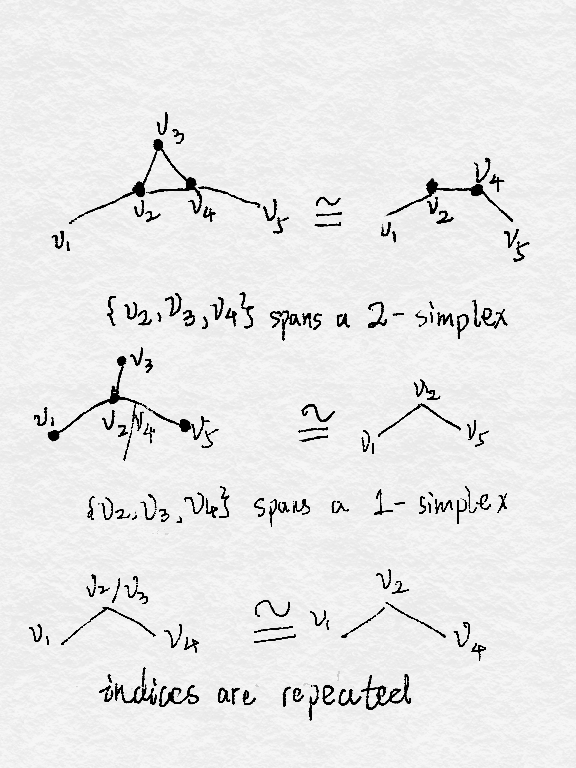 v3
v2 v4 v5 ≅ v4
v1 v1 v2 v5
{v2, v3, v4} spans a 2-simplex
v3
v1 v2/v4 v5 ≅ v1 v2 v5
{v2, v3, v4} spans a 1-simplex
v2/v3 v2
v1 v4 ≅ v1 v4
indices are repeated